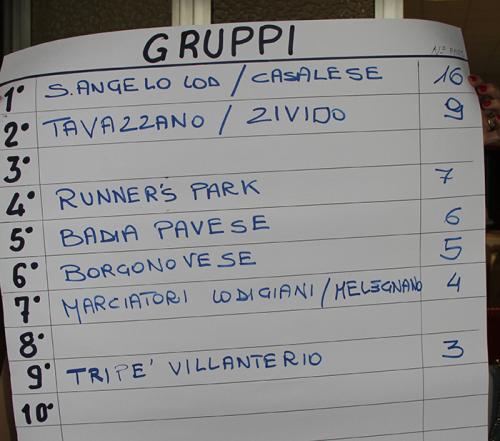 GRUPPI
1° S. ANGELO LOD / CASALESE 16
2° TAVAZZANO / ZIVIDO 9
3°
4° RUNNER'S PARK 7
5° BADIA PAVESE 6
6° BORGONOVESE 5
7° MARCIATORI LODIGIANI / MELEGNANO 4
8°
9° TRIPE' VILLANTERIO 3
10°